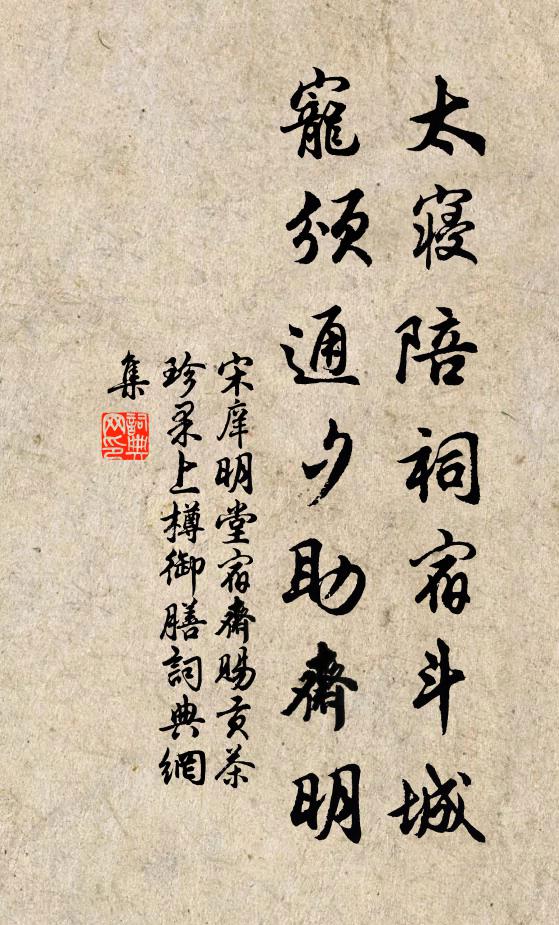 太寝陪祠宿斗城
寵頒通夕助齋明
宋庠明堂宿齋賜貢茶
珍果上樽御膳詞典網
集
詞典
网印